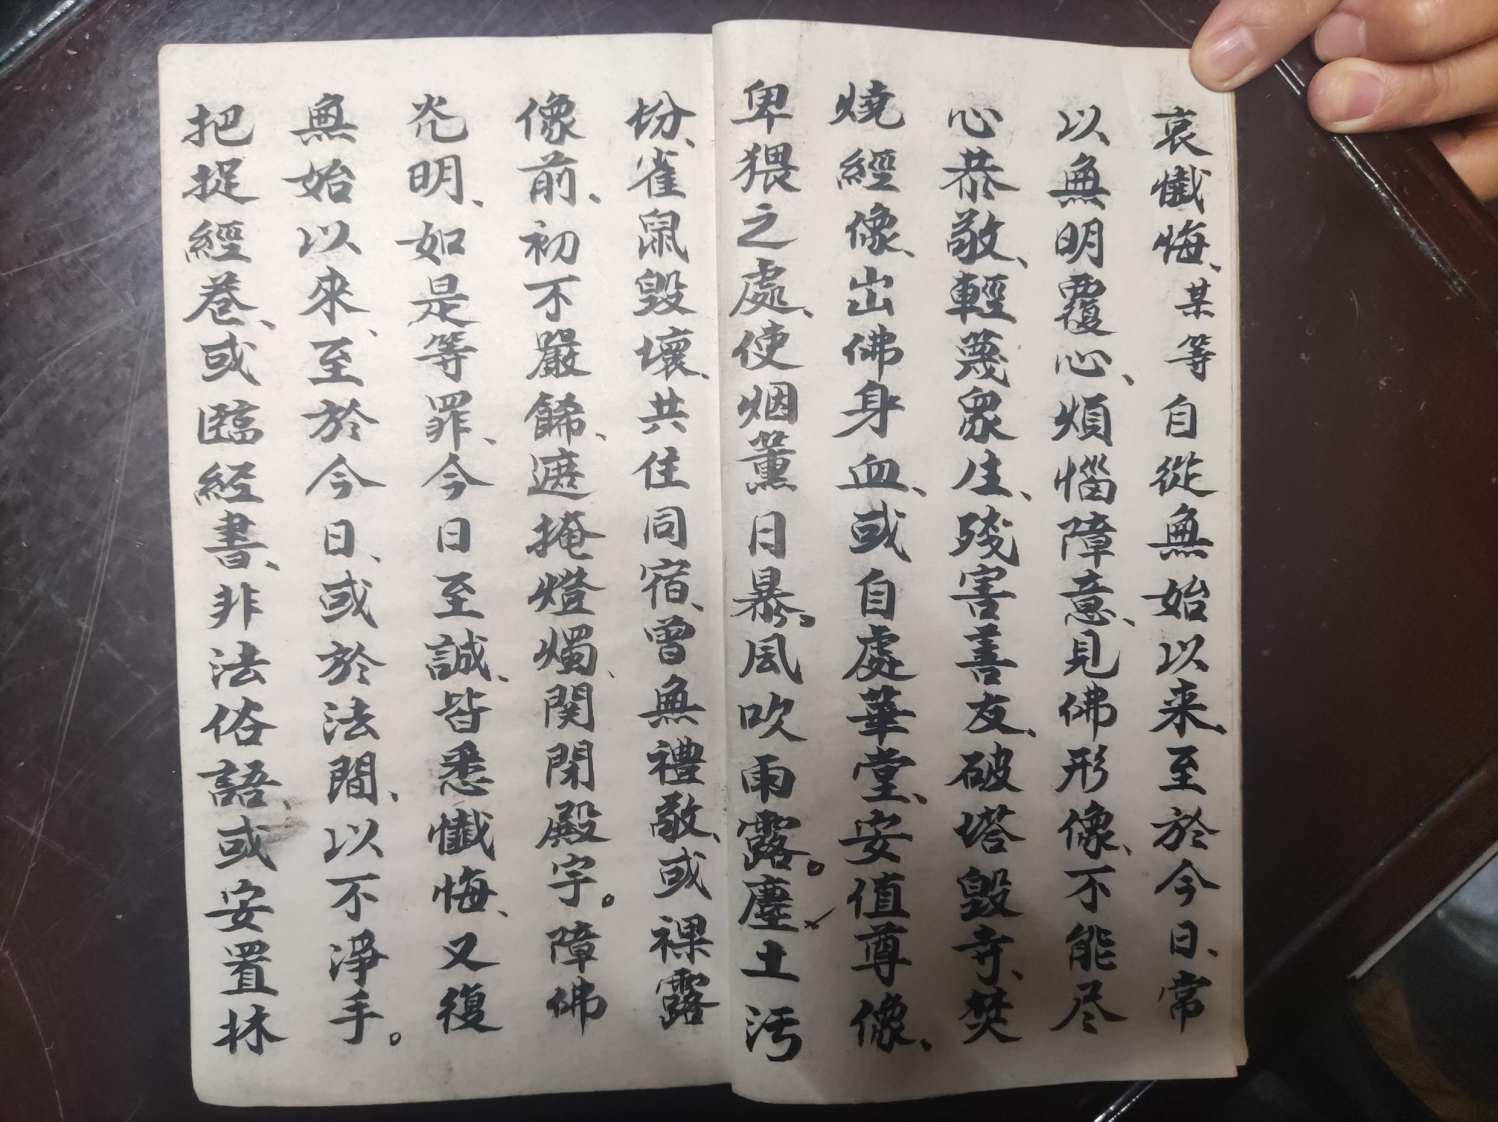 哀懺悔、某等自從無始以来、至於今日、常
以無明覆心、煩惱障意、見佛形像、不能尽
心恭敬、輕蔑衆生、殘害善友、破塔毀寺、焚
燒經像、出佛身血、或自處華堂、安值尊像、
卑猥之處、使烟薰日暴。風吹雨露。塵土汚
坋、雀鼠毀壞、共住同宿、曾無禮敬、或裸露
像前、初不嚴餙、遮掩燈燭、関閉殿宇。障佛
光明、如是等罪、今日至誠、皆悉懺悔、又復
無始以來、至於今日、或於法間、以不淨手。
把捉經卷、或臨經書、非法俗語、或安置牀